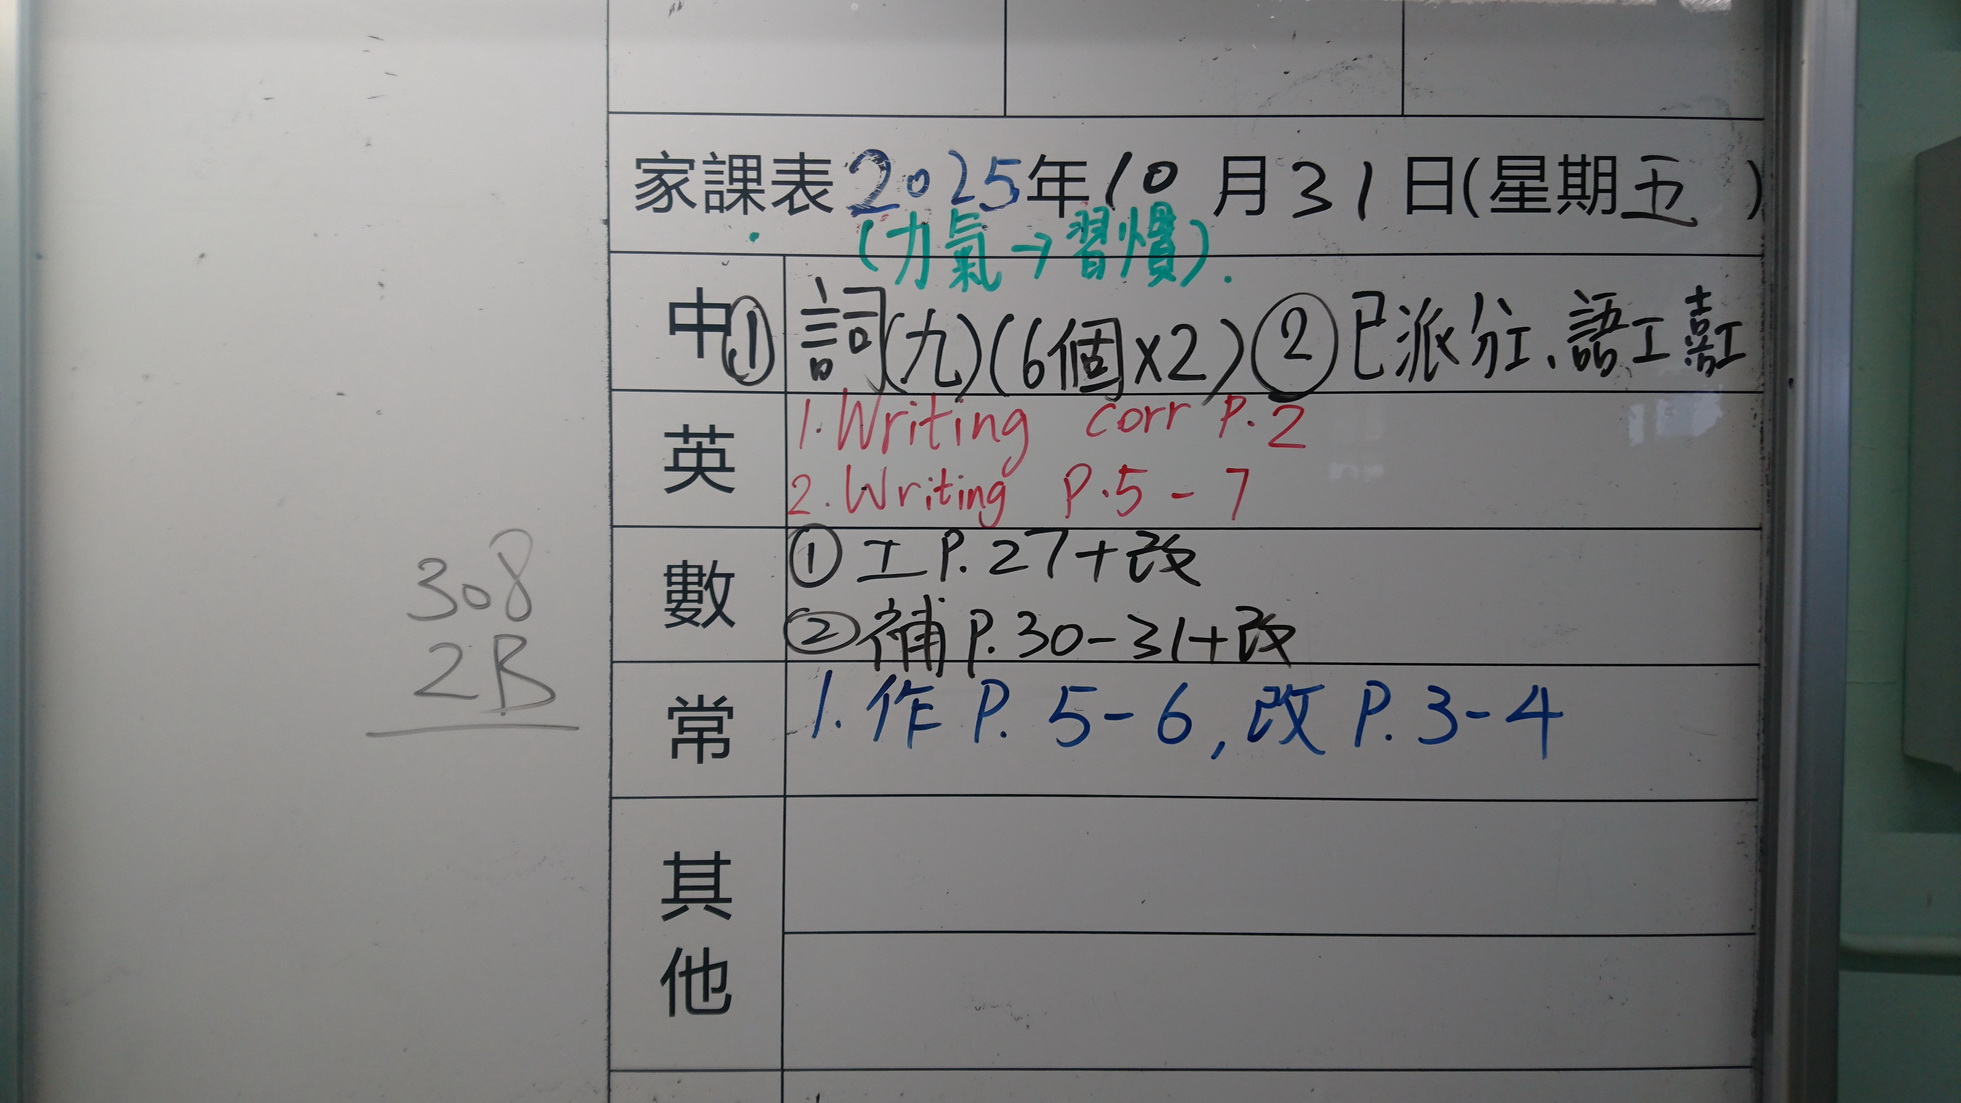 家課表2025年10月31日(星期五)
(力氣→習慣).
中 ① 詞(九)(6個x2) ② 已派分工、語工
英 1. Writing corr P.2
2. Writing P.5-7
數 ① 工P.27+改
② 補P.30-31+改
308
2B
常 1. 作P. 5-6, 改P. 3-4
其他